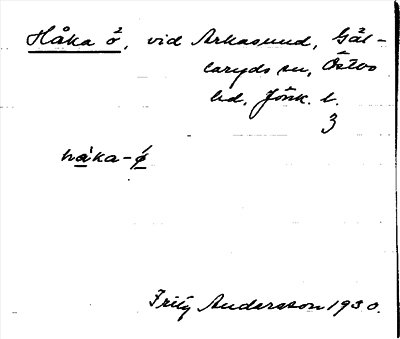 Håka ö, vid Arkasund, Gål-
laryds sn, Östbo
hd, Jönk. l.
3
håka-ø
Fritz Andersson 1930.